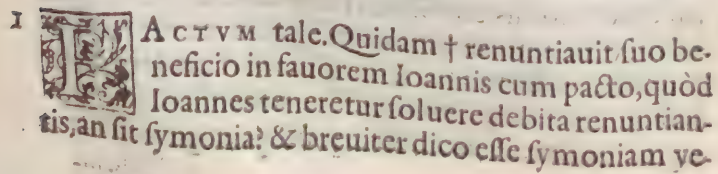 1 FACTVM tale. Quidam † renuntiauit ſuo be-
neficio in fauorem Ioannis cum pacto, quòd
Ioannes teneretur ſoluere debita renuntian-
tis, an ſit ſymonia? & breuiter dico eſſe ſymoniam ve-